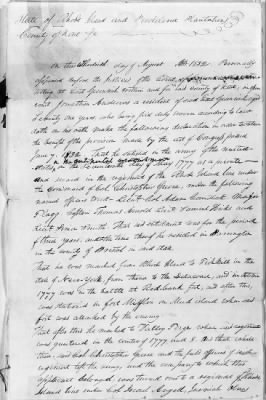 State of Rhode Island and Providence Plantations
County of Kent Ss
On this            day of August AD 1832 Personally
appeared before the Justices of the Court
sitting at East Greenwich within and for said County of Kent, in open
court Jonathan Andrews a resident of said East Greenwich aged
Seventy one years who being first duly sworn according to law
doth on his oath make the following declaration in order to obtain
the benefit of the provision made by the act of Congress passed
June 7, 1832. That he enlisted in the army of the United
States,                         1777 as a private
and served in the regiment of the Rhode Island line under
the command of Col Christopher Greene, under the following
named officers
Flagg Captain Thomas Arnold Lieut
Lieut                 That he enlisted was for the period
of three years, and at the time thereof he resided in
in the county of
That he was marched from Rhode Island to            in the
State of New York, from thence to the Delaware, and in
1777 was in the battle at Red Bank fort, and after this,
was stationed in fort Mifflin on Mud island when said
fort was attacked by the enemy
That after this he marched to Valley Forge where said regiment
was quartered in the winter of 1777 and 8. At that
time, said Col Christopher Greene and the field officers of
regiment left the army, and the company to which this
applicant belonged was turned over to a regiment of Rhode
Island line under Col Israel Angell, Jeremiah Olney